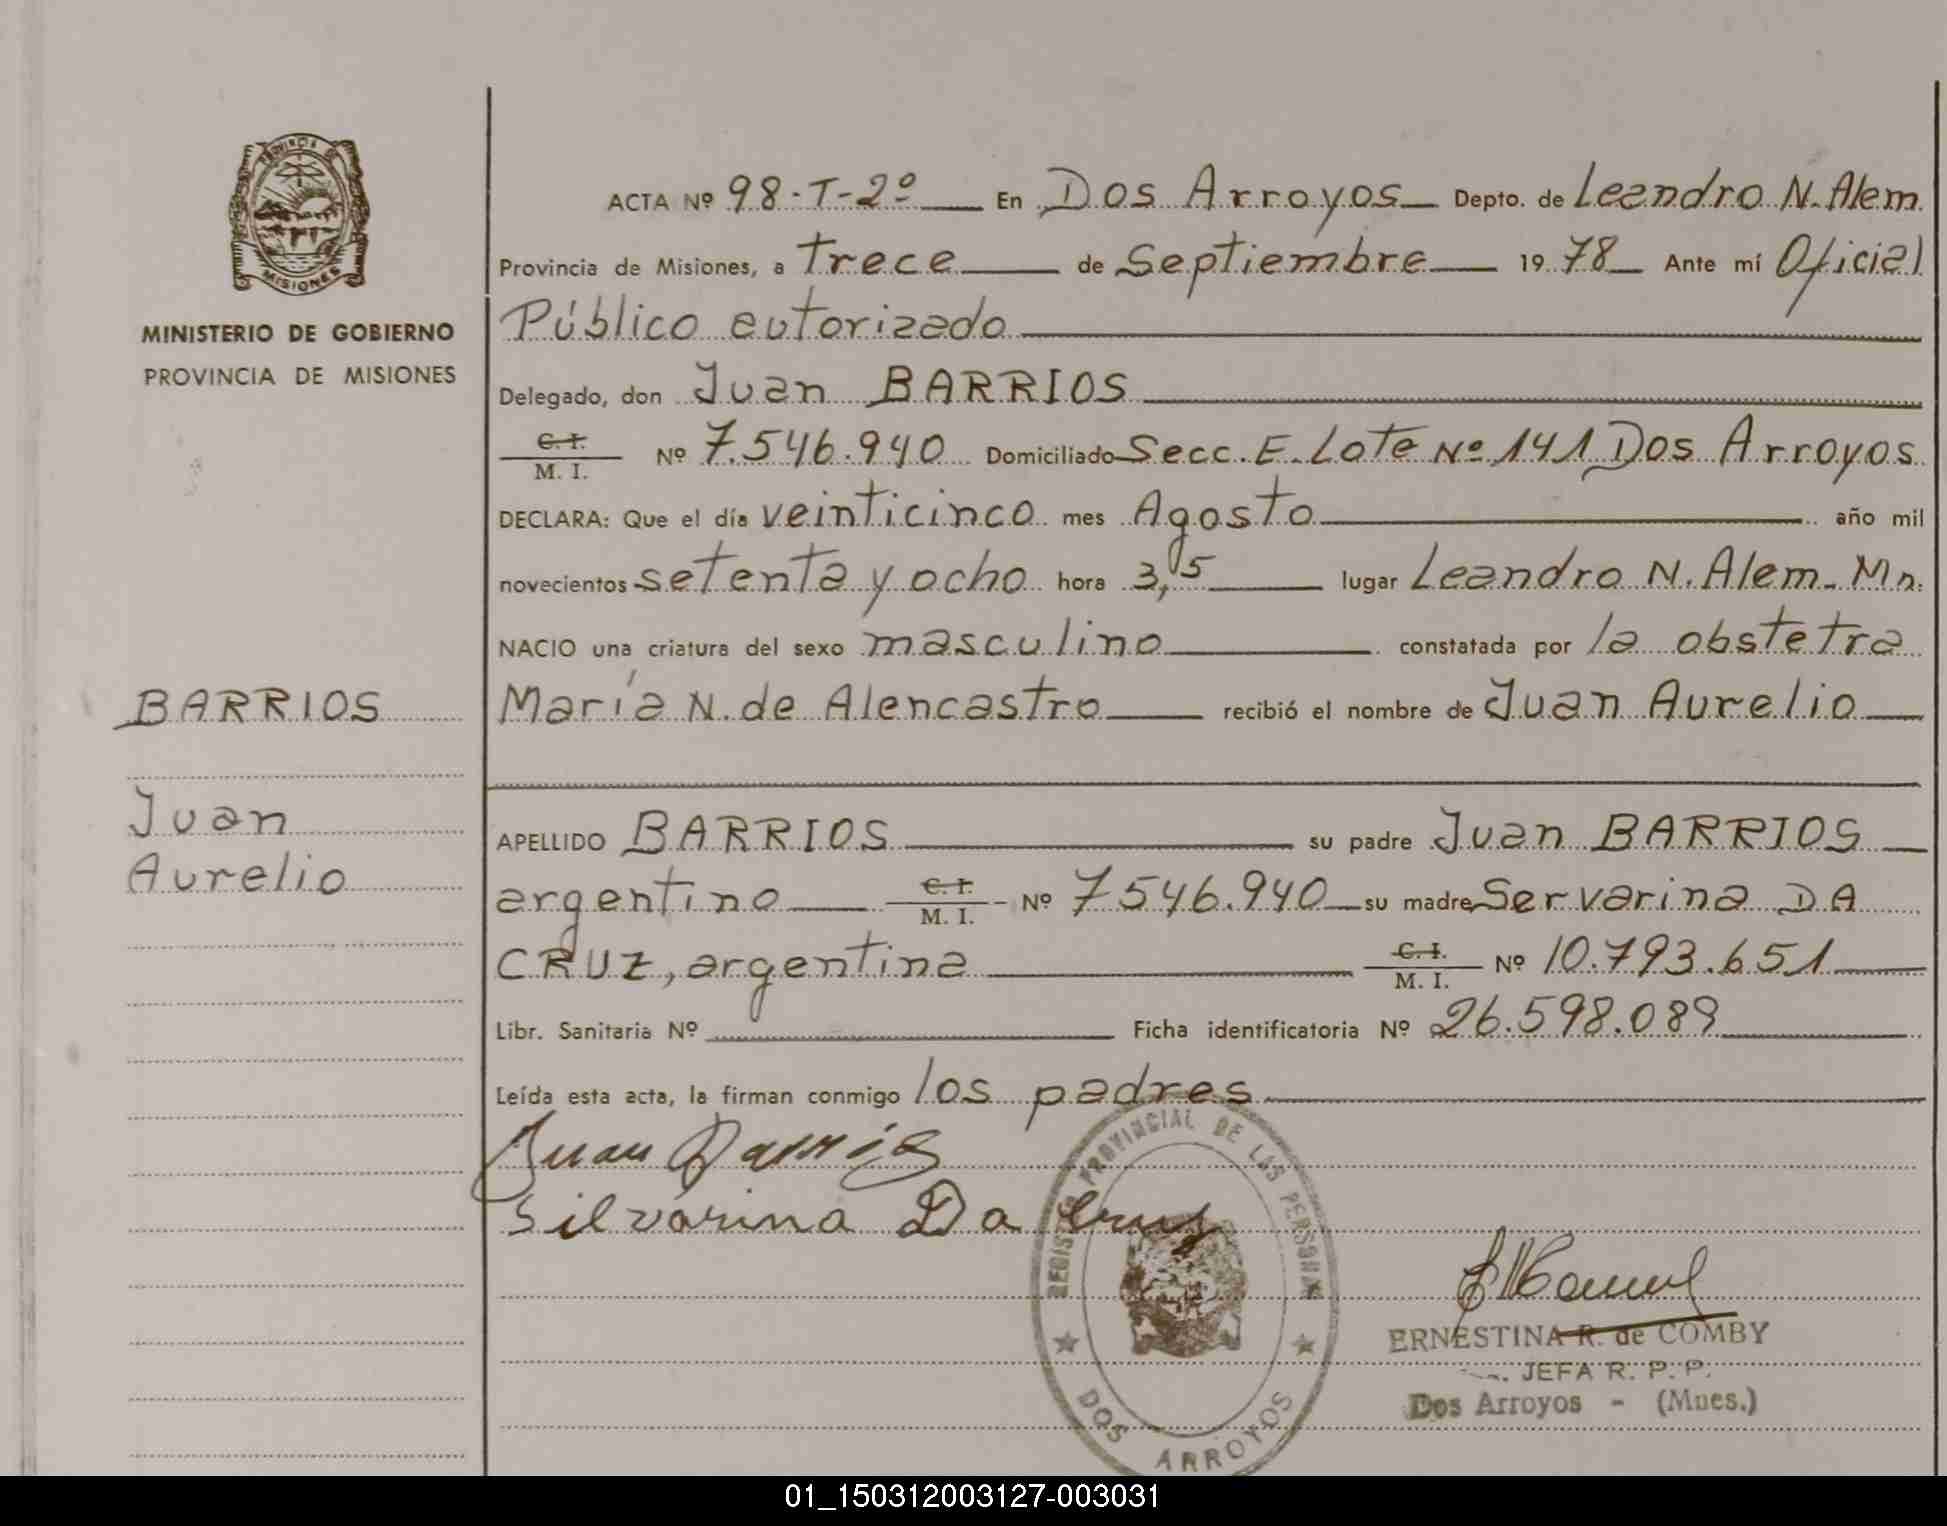 PROVINCIA DE
MISIONES
MINISTERIO DE GOBIERNO
PROVINCIA DE MISIONES
BARRIOS
Juan
Aurelio
ACTA Nº 98-T-2º En Dos Arroyos Depto. de Leandro N. Alem.
Provincia de Misiones, a trece de Septiembre 1978 Ante mí Oficial
Público autorizado
Delegado, don Juan BARRIOS
C. I.
M. I. Nº 7.546.940 Domiciliado Secc. E. Lote Nº 141 Dos Arroyos
DECLARA: Que el día veinticinco mes Agosto año mil
novecientos setenta y ocho hora 3,15 lugar Leandro N. Alem. Mn.
NACIO una criatura del sexo masculino constatada por la obstetra
María N. de Alencastro recibió el nombre de Juan Aurelio
APELLIDO BARRIOS su padre Juan BARRIOS
argentino C. I. M. I. Nº 7546.940 su madre Servarina DA
CRUZ, argentina C. I. M. I. Nº 10.793.651
Libr. Sanitaria Nº Ficha identificatoria Nº 26.598.089
Leída esta acta, la firman conmigo los padres
Juan Barrios
Silvarina Da Cruz
REGISTRO PROVINCIAL DE LAS PERSONAS
DOS ARROYOS
ERNESTINA R. de COMBY
JEFA R. P. P.
Dos Arroyos - (Mnes.)
01_150312003127-003031